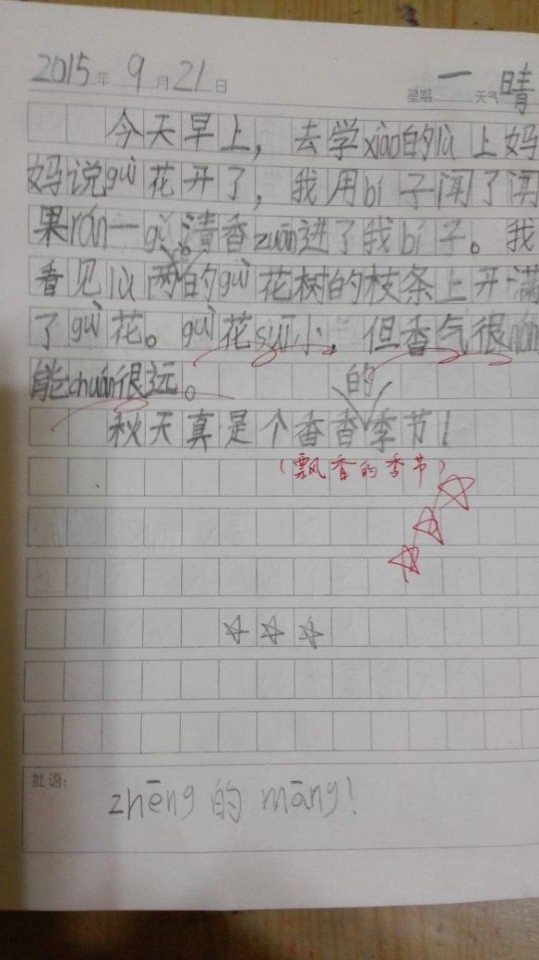 2015年 9月21日 星期一 天气晴
今天早上，去学xiào的lù上妈
妈说guì花开了，我用bí子闻了闻
果rán一gǔ清香zuān进了我bí子。我
看见lù两的guì花树的枝条上开满
了guì花。guì花suī小，但香气很nóng
能chuán很远。
的
秋天真是个香香季节！
（飘香的季节）
批语：
zhēng的máng！